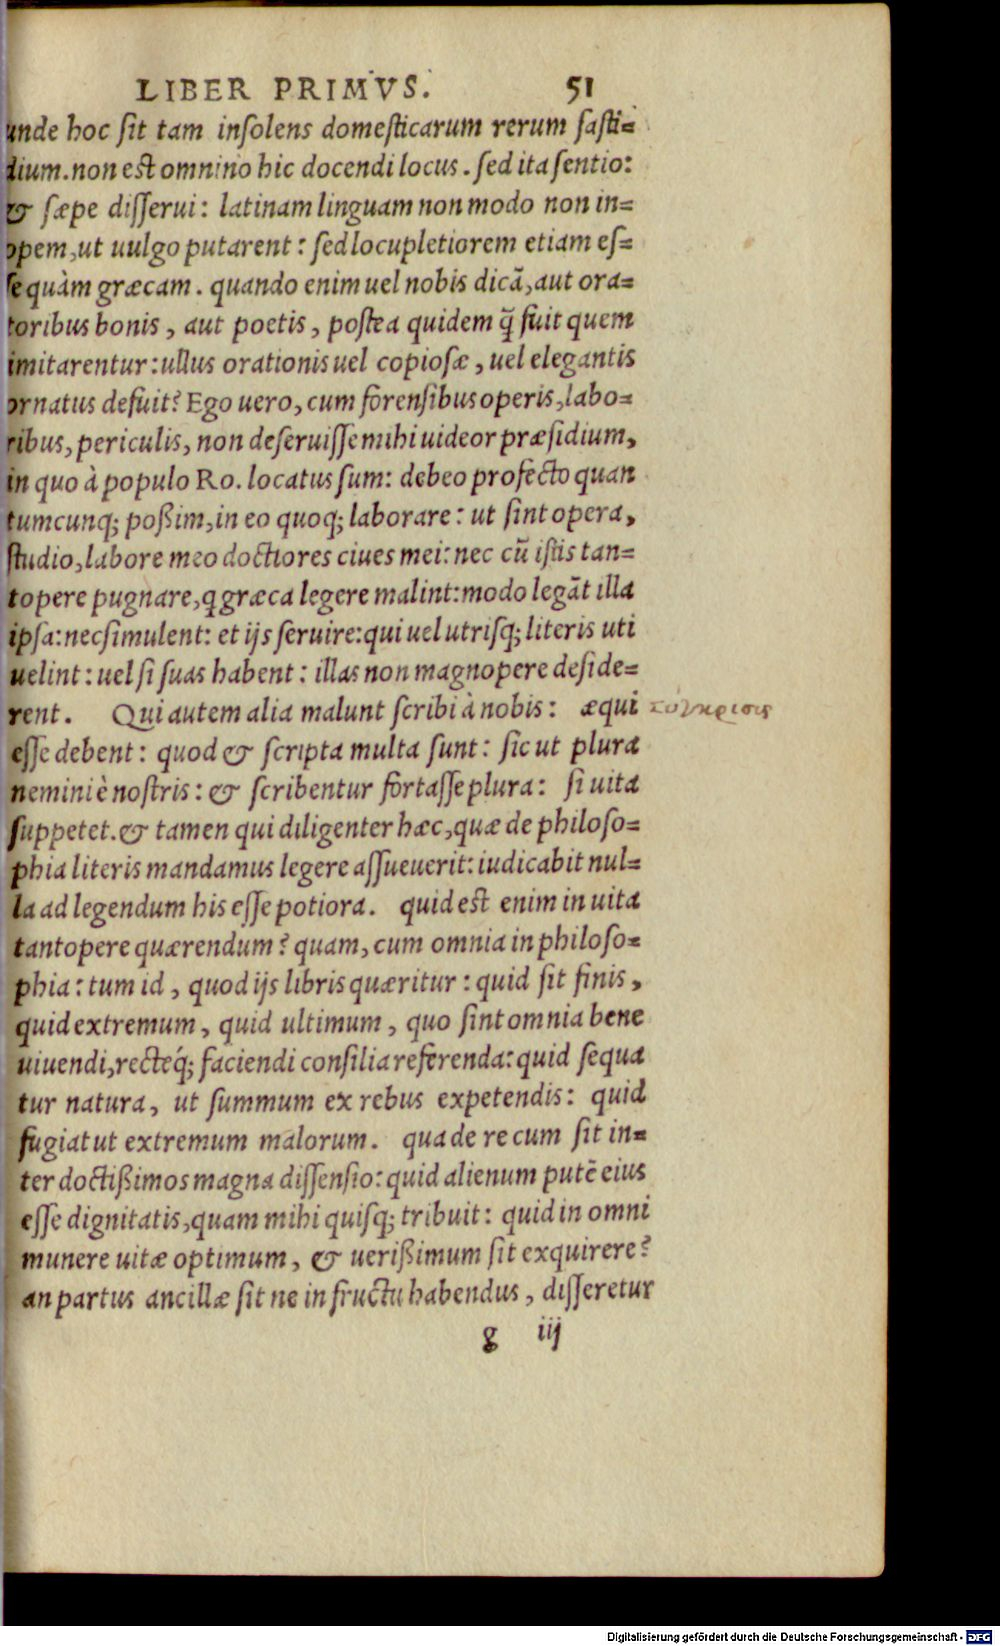 LIBER PRIMVS. 51
unde hoc ſit tam inſolens domeſticarum rerum faſti=
dium. non est omnino hic docendi locus. ſed ita ſentio:
& ſæpe diſſerui: latinam linguam non modo non in=
opem, ut uulgo putarent: ſed locupletiorem etiam eſ=
ſe quàm græcam. quando enim uel nobis dicā, aut ora=
toribus bonis, aut poetis, poſtea quidem q̃ fuit quem
imitarentur: ullus orationis uel copioſæ, uel elegantis
ornatus defuit? Ego uero, cum forenſibus operis, labo=
ribus, periculis, non deſeruiſſe mihi uideor præſidium,
in quo à populo Ro. locatus ſum: debeo profecto quan
tumcunq; poßim, in eo quoq; laborare: ut ſint opera,
ſtudio, labore meo doctiores ciues mei: nec cū iſtis tan=
topere pugnare, q græca legere malint: modo legāt illa
ipſa: nec ſimulent: et ijs ſeruire: qui uel utriſq; literis uti
uelint: uel ſi ſuas habent: illas non magnopere deſide=
rent. Qui autem alia malunt ſcribi à nobis: æqui
eſſe debent: quod & ſcripta multa ſunt: ſic ut plura
nemini è noſtris: & ſcribentur fortaſſe plura: ſi uita
ſuppetet. & tamen qui diligenter hæc, quæ de philoſo=
phia literis mandamus legere aſſueuerit: iudicabit nul=
la ad legendum his eſſe potiora. quid est enim in uita
tantopere quærendum? quam, cum omnia in philoſo=
phia: tum id, quod ijs libris quæritur: quid ſit finis,
quid extremum, quid ultimum, quo ſint omnia bene
uiuendi, recteq́; faciendi conſilia referenda: quid ſequa
tur natura, ut ſummum ex rebus expetendis: quid
fugiat ut extremum malorum. qua de re cum ſit in=
ter doctißimos magna diſſenſio: quid alienum putē eius
eſſe dignitatis, quam mihi quiſq; tribuit: quid in omni
munere uitæ optimum, & uerißimum ſit exquirere?
an partus ancillæ ſit ne in fructu habendus, diſſeretur
g iij
Digitalisierung gefördert durch die Deutsche Forschungsgemeinschaft - DFG